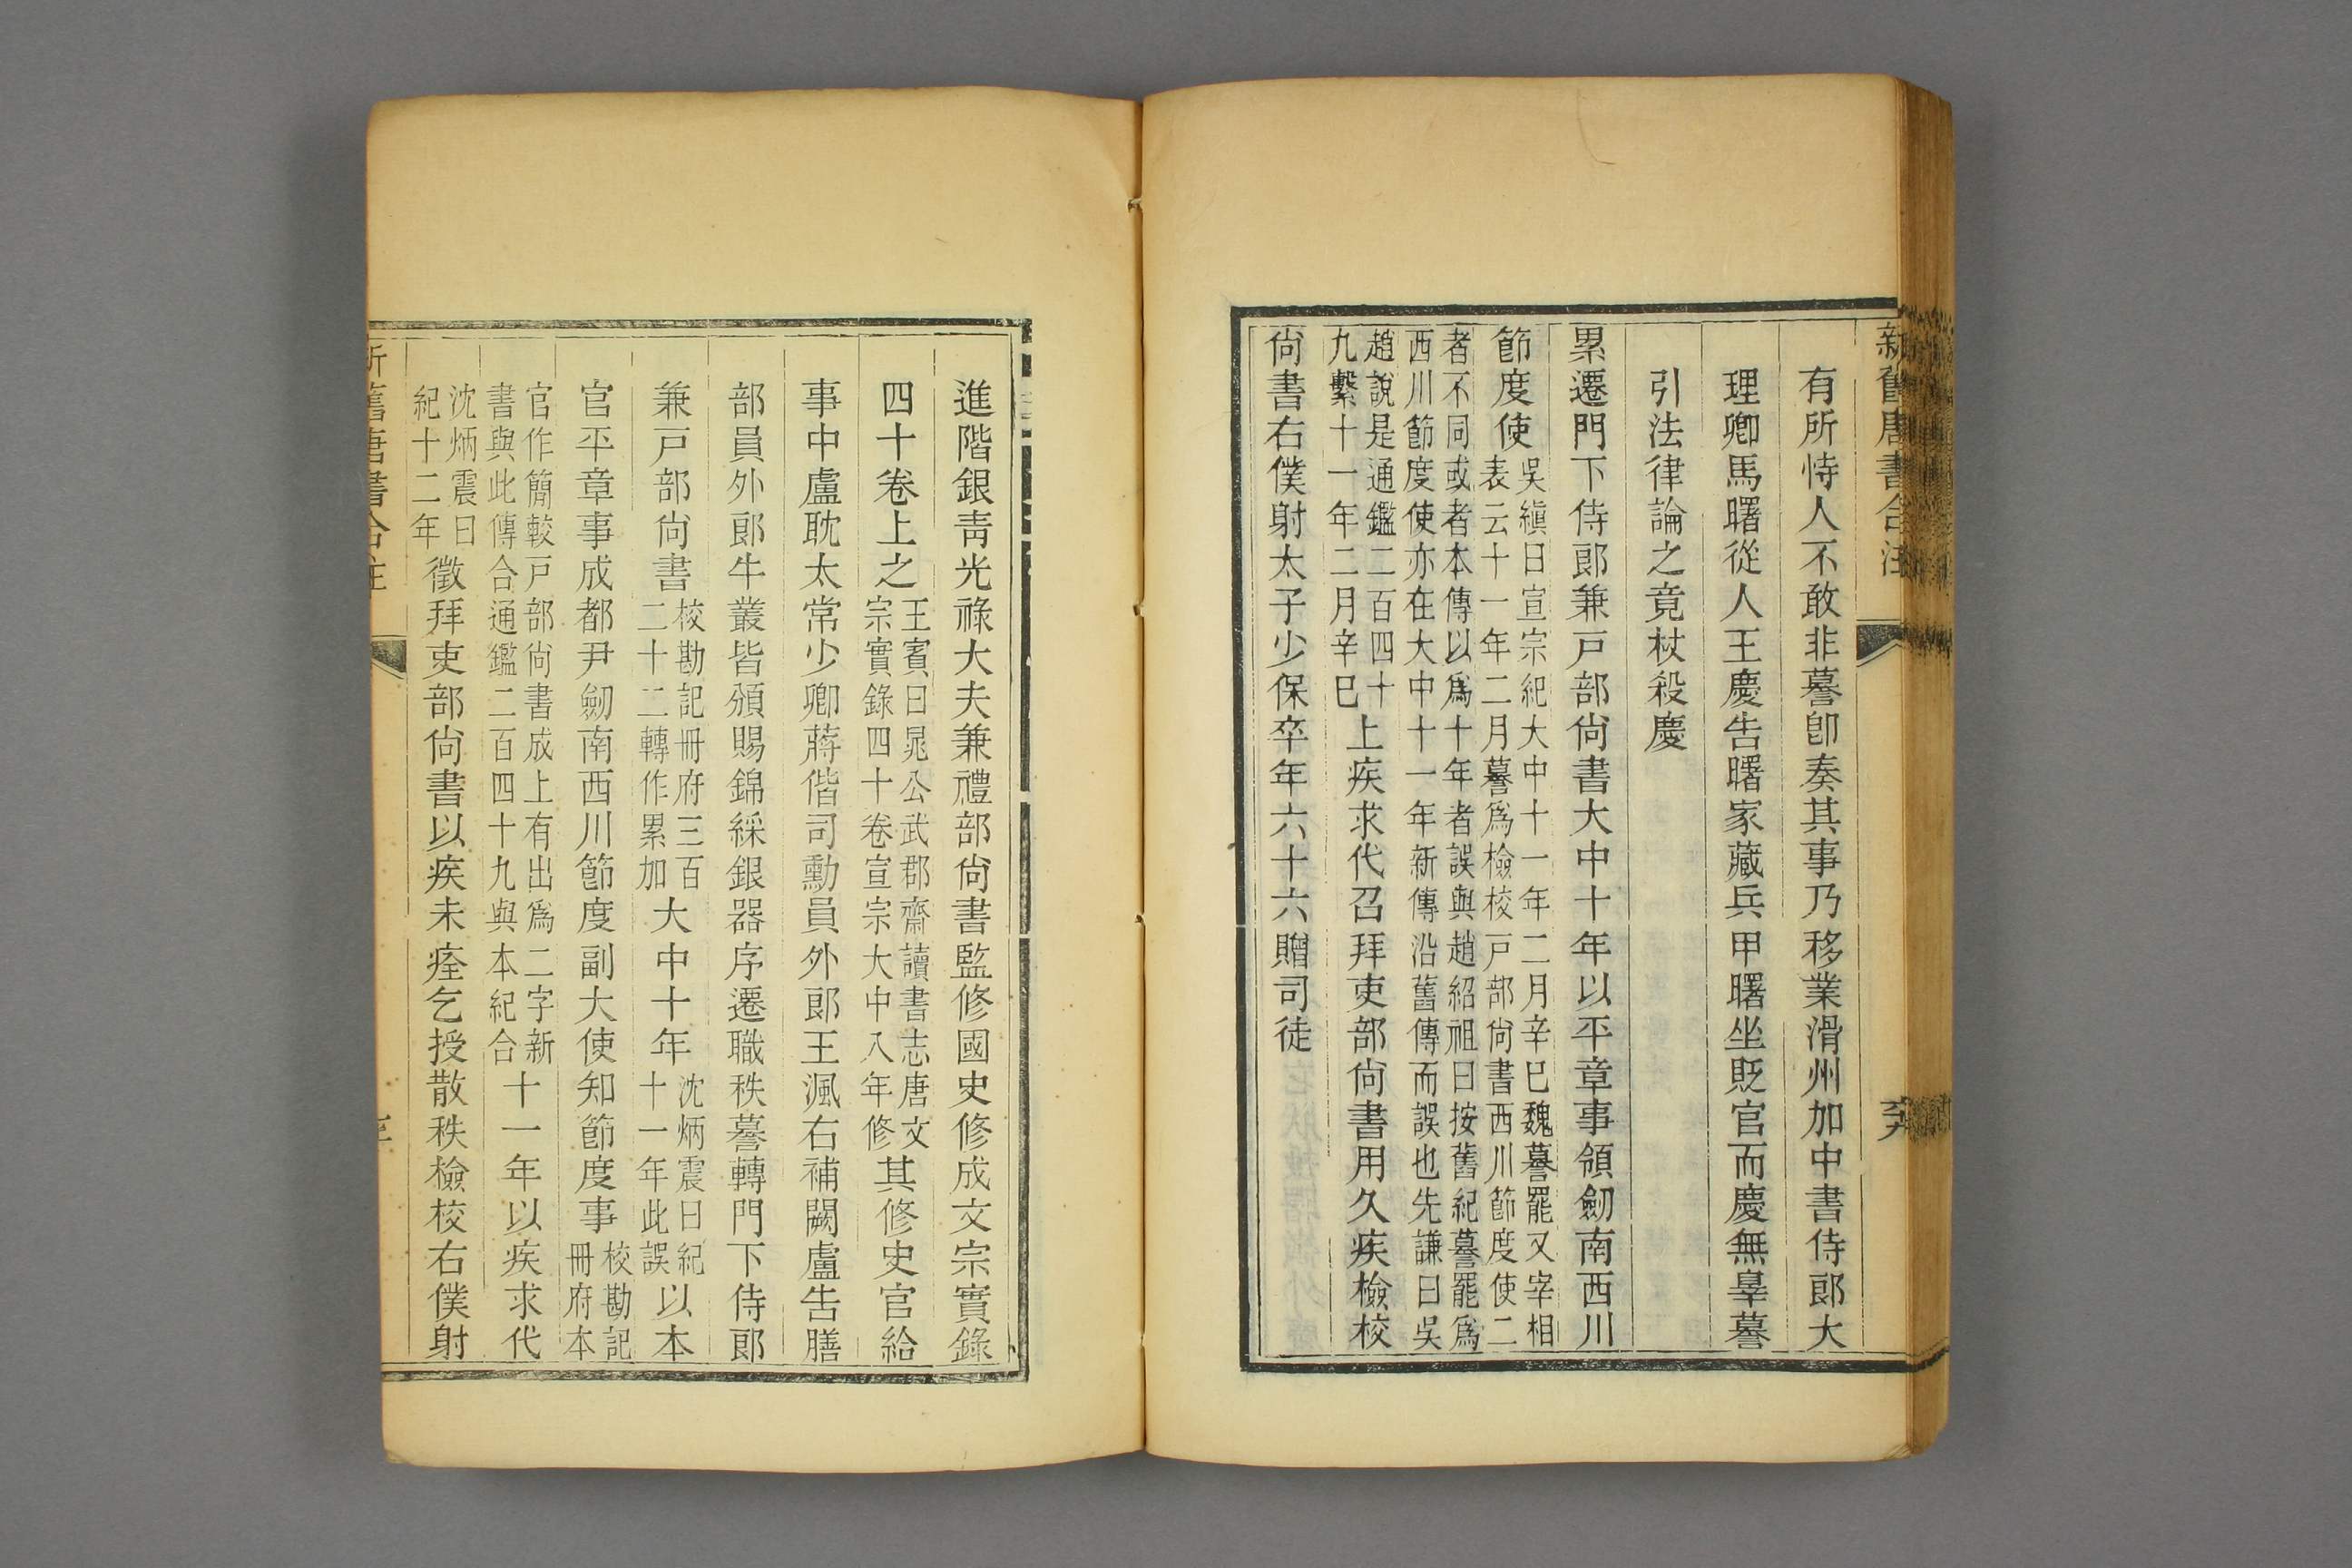 新舊唐書合注
有所恃人不敢非謩卽奏其事乃移業滑州加中書侍郞大
理卿馬曙從人王慶告曙家藏兵甲曙坐貶官而慶無辠謩
引法律論之竟杖殺慶
累遷門下侍郞兼戸部尙書大中十年以平章事領劒南西川
節度使吳縝曰宣宗紀大中十一年二月辛巳魏謩罷又宰相表云十一年二月謩爲檢校戸部尙書西川節度使二
者不同或者本傳以爲十年者誤與趙紹祖曰按舊紀謩罷爲西川節度使亦在大中十一年新傳沿舊傳而誤也先謙曰吳
趙說是通鑑二百四十九繫十一年二月辛巳上疾求代召拜吏部尙書用久疾檢校
尙書右僕射太子少保卒年六十六贈司徒
進階銀靑光祿大夫兼禮部尙書監修國史修成文宗實錄
四十卷上之王賓曰晁公武郡齋讀書志唐文宗實錄四十卷宣宗大中八年修其修史官給
事中盧耽太常少卿蔣偕司勳員外郞王渢右補闕盧告膳
部員外郞牛叢皆頒賜錦綵銀器序遷職秩謩轉門下侍郞
兼戸部尙書校勘記冊府三百二十二轉作累加大中十年沈炳震曰紀十一年此誤以本
官平章事成都尹劒南西川節度副大使知節度事校勘記冊府本
官作簡較戸部尙書成上有出爲二字新書與此傳合通鑑二百四十九與本紀合十一年以疾求代
沈炳震曰紀十二年徵拜吏部尙書以疾未痊乞授散秩檢校右僕射
新舊唐書合注